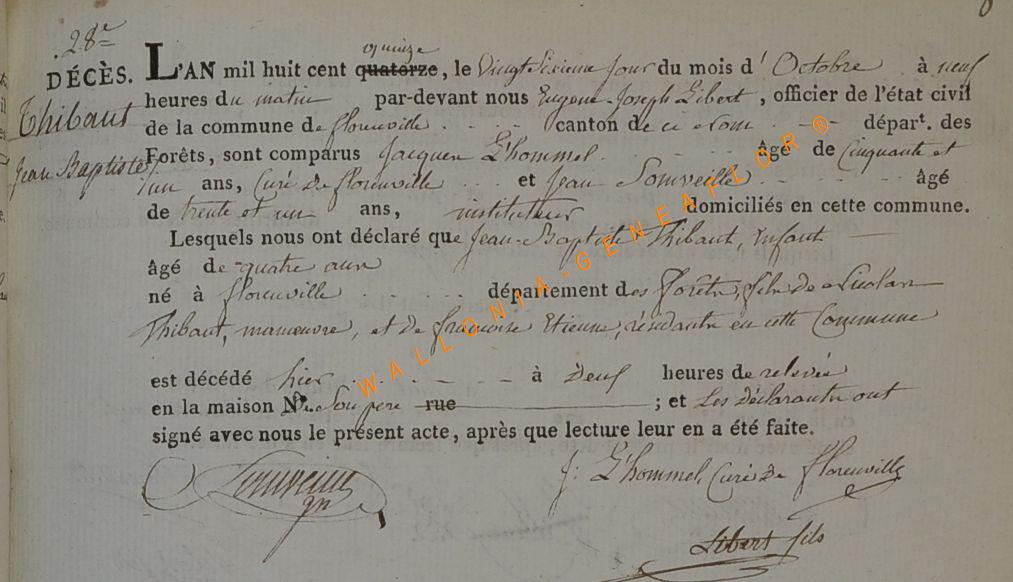 28e
quinze
DÉCÈS. L'AN mil huit cent quatorze, le Vingt Sixieme Jour du mois d' Octobre à neuf
Thibaut heures du matin par-devant nous Eugene Joseph Libert, officier de l'état civil
de la commune de florenville canton de ce Nom départ. des
Jean Baptiste Forêts, sont comparus Jacques L'hommel Âgé de Cinquante et
un ans, Curé de florenville et Jean Somveille âgé
de trente et un ans, instituteur domiciliés en cette commune.
Lesquels nous ont déclaré que Jean-Baptiste Thibaut, enfant
âgé de quatre ans
né à florenville département des Forêts, fils de Nicolas
Thibaut, manœuvre, et de françoise Etienne, résidants en cette Commune
est décédé hier à Deux heures de relevée
en la maison De Son pere rue ; et Les Déclarants ont
signé avec nous le présent acte, après que lecture leur en a été faite.
Somveille J: L'hommel, Curé De florenville
Libert fils
WALLONIA-GENEAFLOR®